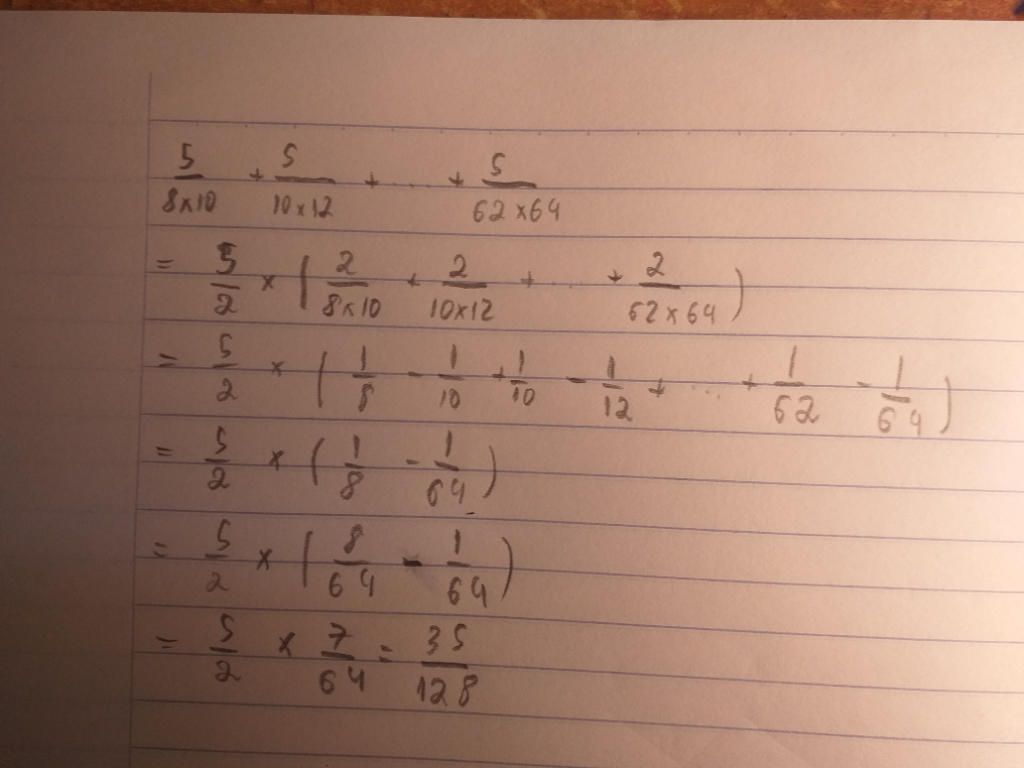 5/(8×10) + 5/(10×12) + .... + 5/(62×64)
= 5/2 × (2/(8×10) + 2/(10×12) + .... + 2/(62×64))
= 5/2 × (1/8 - 1/10 + 1/10 - 1/12 + .... + 1/62 - 1/64)
= 5/2 × (1/8 - 1/64)
= 5/2 × (8/64 - 1/64)
= 5/2 × 7/64 = 35/128